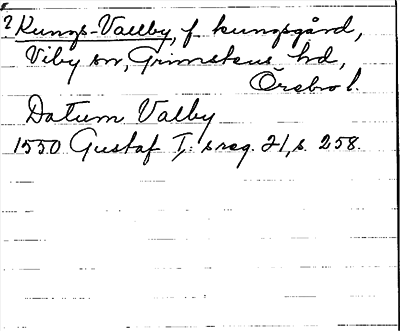 ? Kungs-Vallby, f kungsgård,
Viby sn, Grimstens hd,
Örebro l.
Datum Valby
1550 Gustaf I: s reg. 21, s 258.